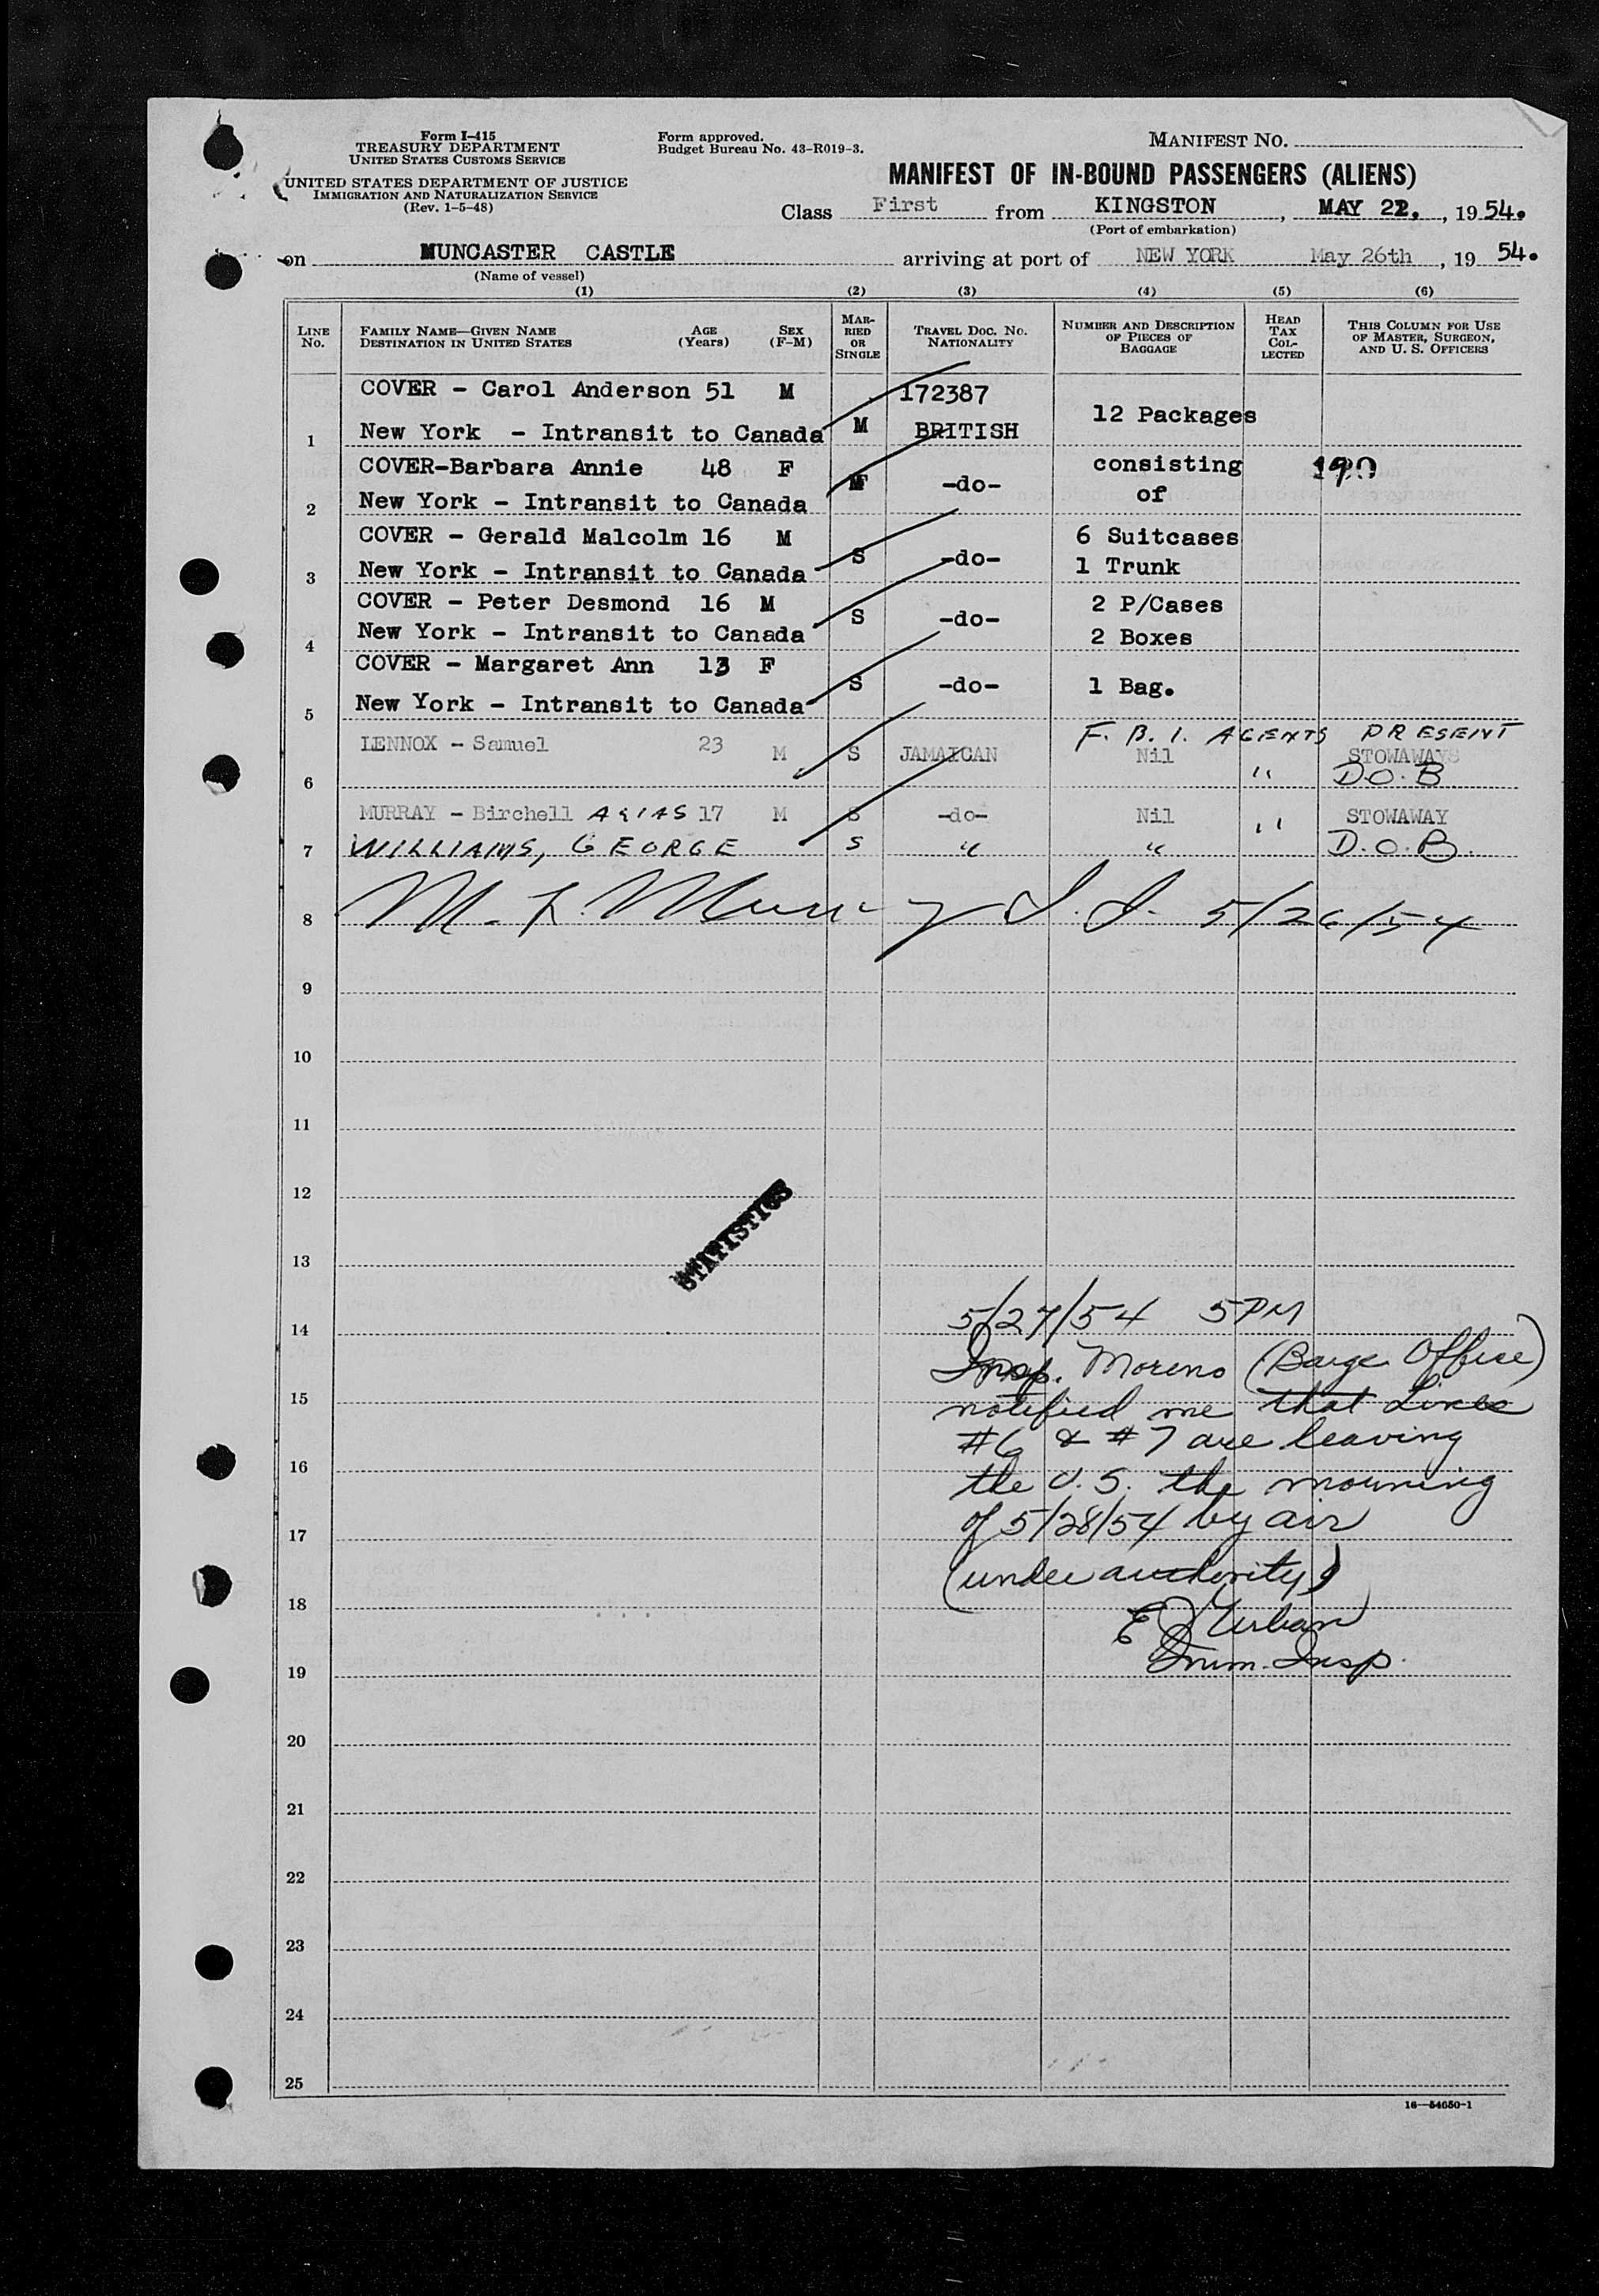 Form I-415
TREASURY DEPARTMENT
UNITED STATES CUSTOMS SERVICE
UNITED STATES DEPARTMENT OF JUSTICE
IMMIGRATION AND NATURALIZATION SERVICE
(Rev. 1-5-48)
Form approved.
Budget Bureau No. 43-R019-3.
MANIFEST NO.
MANIFEST OF IN-BOUND PASSENGERS (ALIENS)
Class First from KINGSTON, MAY 22, 1954.
(Port of embarkation)
on MUNCASTER CASTLE arriving at port of NEW YORK May 26th, 1954.
(Name of vessel)
(1) (2) (3) (4) (5) (6)
LINE NO. FAMILY NAME—GIVEN NAME DESTINATION IN UNITED STATES AGE (Years) SEX (F-M) MARRIED OR SINGLE TRAVEL DOC. NO. NATIONALITY NUMBER AND DESCRIPTION OF PIECES OF BAGGAGE HEAD TAX COLLECTED THIS COLUMN FOR USE OF MASTER, SURGEON, AND U. S. OFFICERS
COVER - Carol Anderson 51 M 172387
12 Packages
1 New York - Intransit to Canada M BRITISH
COVER-Barbara Annie 48 F consisting
2 New York - Intransit to Canada -do- of
COVER - Gerald Malcolm 16 M 6 Suitcases
3 New York - Intransit to Canada S -do- 1 Trunk
COVER - Peter Desmond 16 M 2 P/Cases
4 New York - Intransit to Canada S -do- 2 Boxes
COVER - Margaret Ann 13 F
5 New York - Intransit to Canada S -do- 1 Bag.
F. B. I. AGENTS PRESENT
LENNOX - Samuel 23 M S JAMAICAN Nil STOWAWAYS
6 " D.O.B.
MURRAY - Birchell ALIAS 17 M S -do- Nil " STOWAWAY
7 WILLIAMS, GEORGE S " " D.O.B.
8 M. L. Murray I. I. 5/26/54
9
10
11
12
STATISTICS
13
5/27/54 5PM
14
Insp. Moreno (Barge Office)
15 notified me that Lines
#6 & #7 are leaving
16 the U.S. the morning
of 5/28/54 by air
17
(under authority)
18
E Urban
19 Imm. Insp.
20
21
22
23
24
25
16—54650-1